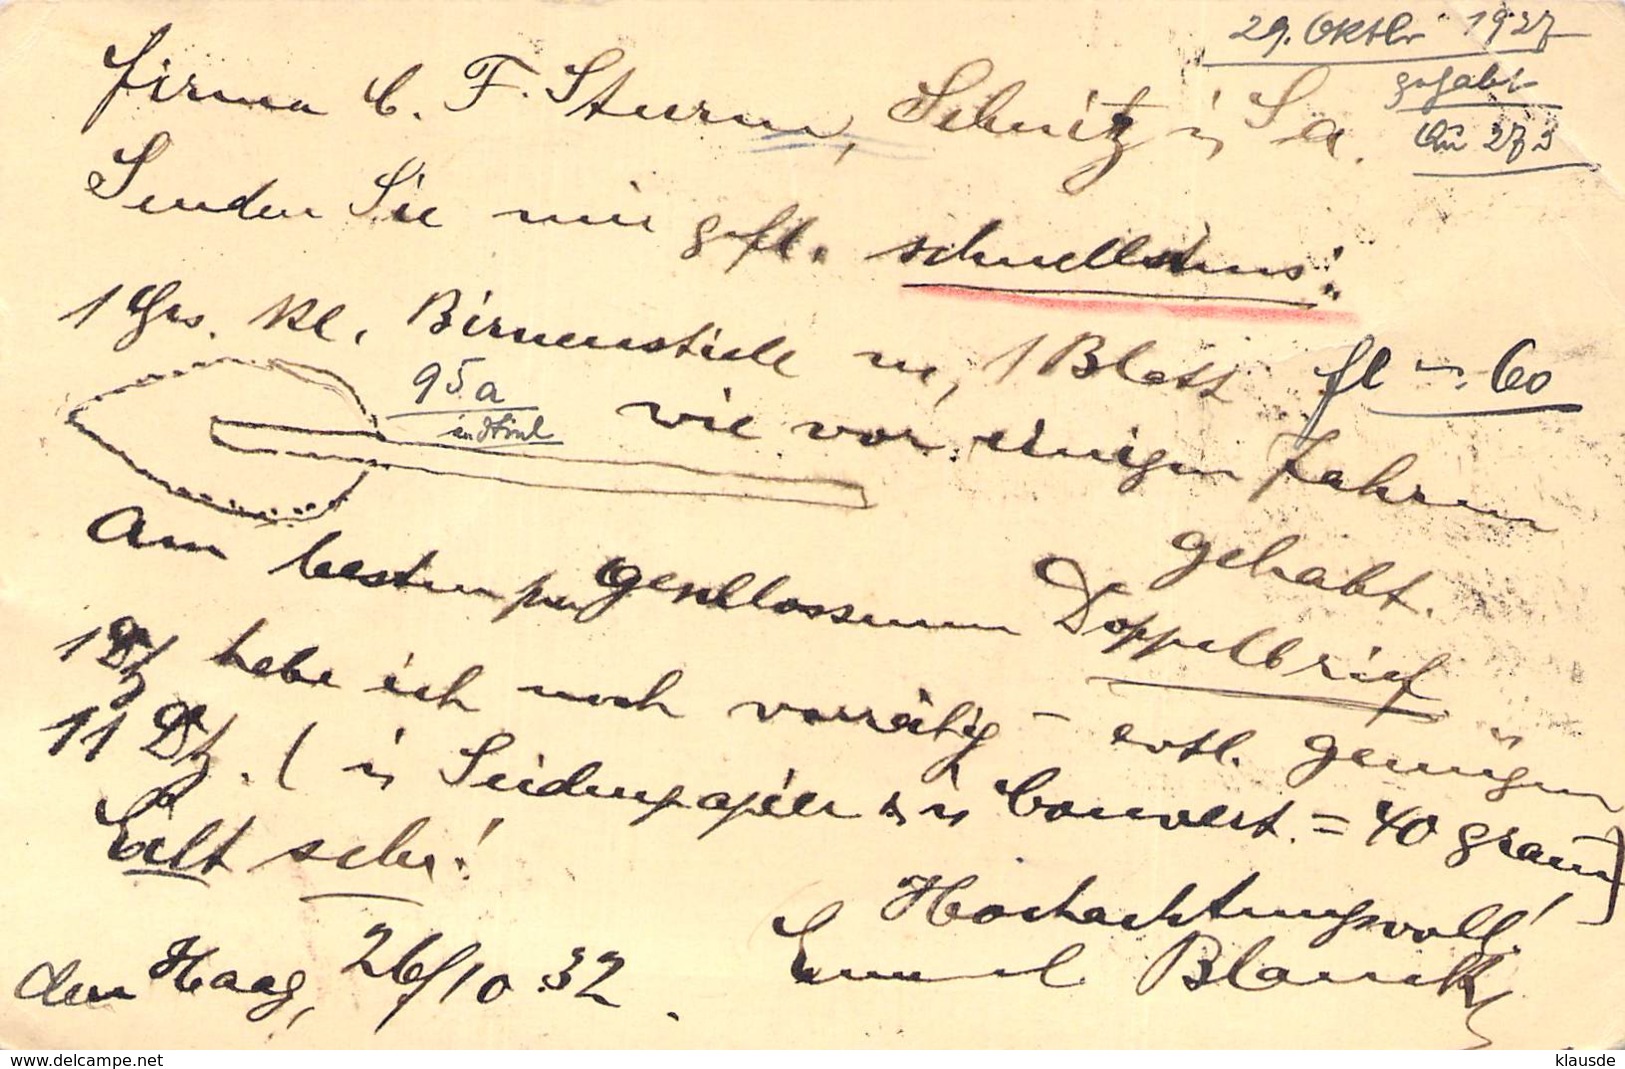 29. Oktbr 1937
gehabt
Firma C. F. Sturm, Sebnitz i/Sa.
Senden Sie mir gefl. schnellstens:
1 Grs. kl. Birnenstiele m. 1 Blatt
95a
wie vor einigen Jahren
gehabt.
Am besten per geschlossenem Doppelbrief
1 Dtz habe ich noch vorrätig - evtl. genügen
11 Dtz. (in Seidenpapier & in Couvert = 40 gramm)
Eilt sehr!
Hochachtungsvoll!
den Haag, 26/10.32.
Emil
www.delcampe.net
klausde